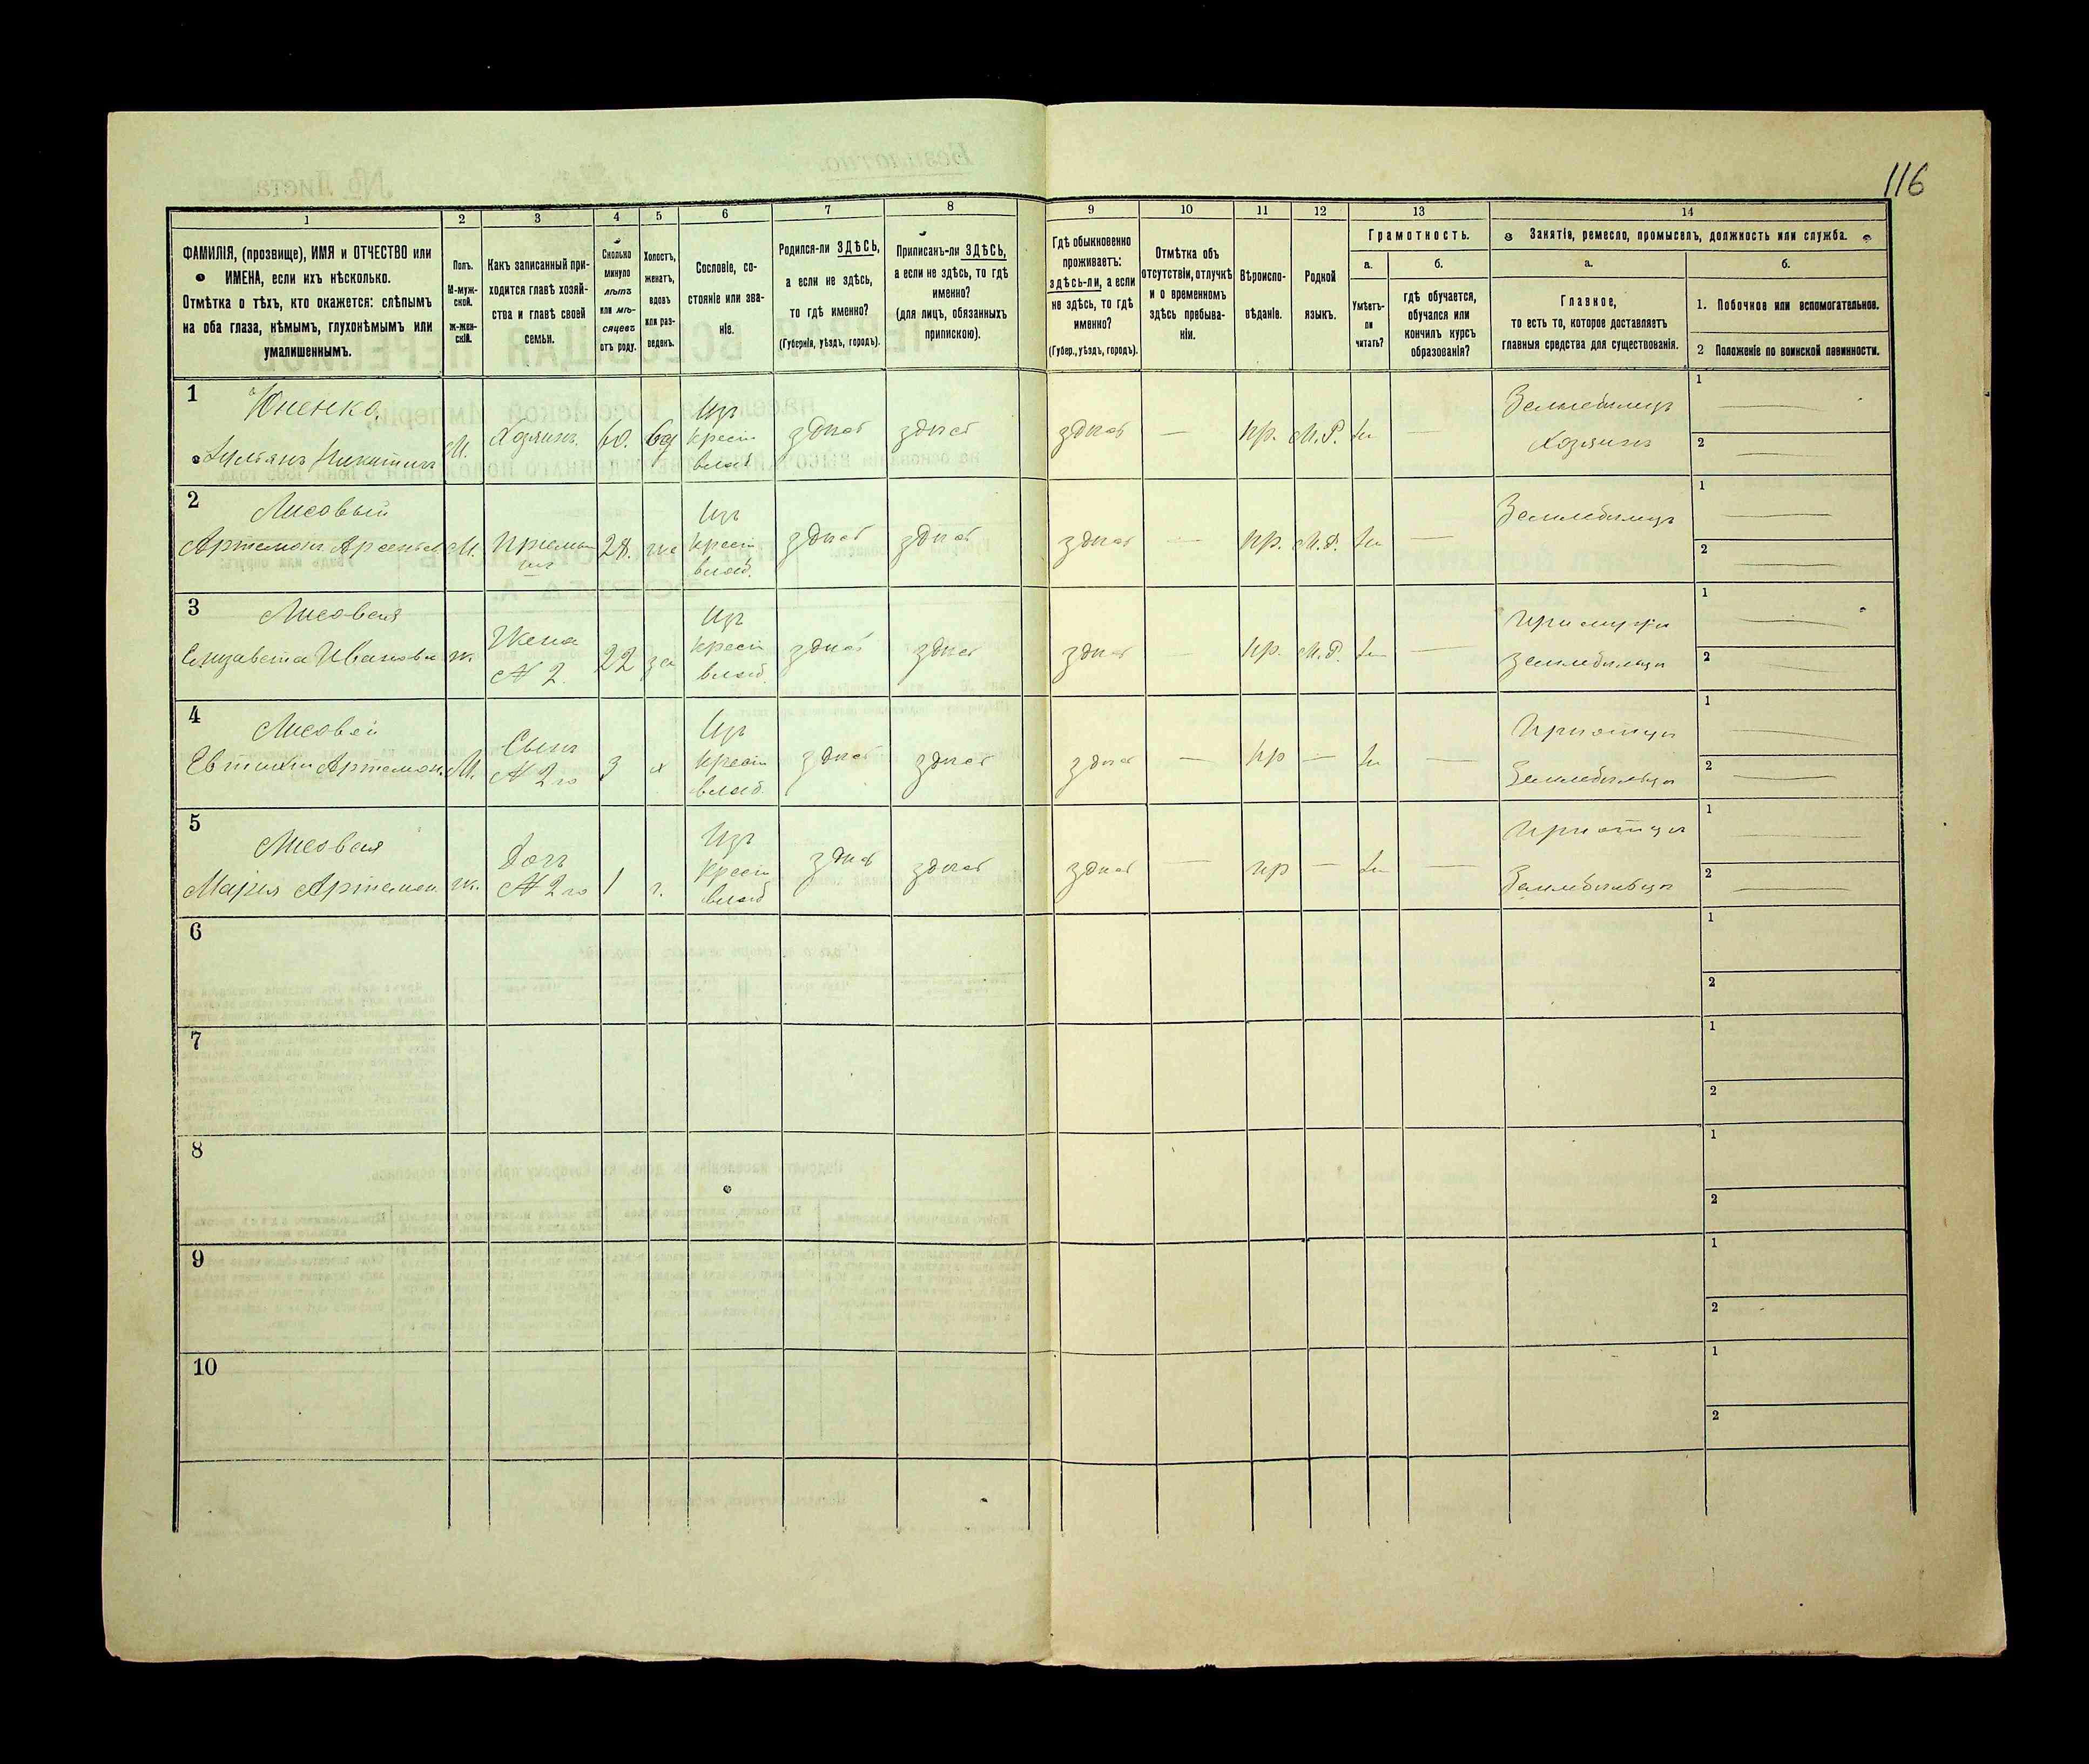 116
1 2 3 4 5 6 7 8 9 10 11 12 13 14
ФАМИЛІЯ, (прозвище), ИМЯ и ОТЧЕСТВО или
ИМЕНА, если ихъ нѣсколько.
Отмѣтка о тѣхъ, кто окажется: слѣпымъ
на оба глаза, нѣмымъ, глухонѣмымъ или
умалишеннымъ.
Полъ.
М-муж-
ской.
ж-жен-
скій.
Какъ записанный при-
ходится главѣ хозяй-
ства и главѣ своей
семьи.
Сколько
минуло
лѣтъ
или мѣ-
сяцевъ
отъ роду.
Холостъ,
женатъ,
вдовъ
или раз-
веденъ.
Сословіе, со-
стояніе или зва-
ніе.
Родился-ли ЗДѢСЬ,
а если не здѣсь,
то гдѣ именно?
(Губернія, уѣздъ, городъ).
Приписанъ-ли ЗДѢСЬ,
а если не здѣсь, то гдѣ
именно?
(для лицъ, обязанныхъ
припискою).
Гдѣ обыкновенно
проживаетъ:
здѣсь-ли, а если
не здѣсь, то гдѣ
именно?
(Губер., уѣздъ, городъ).
Отмѣтка объ
отсутствіи, отлучкѣ
и о временномъ
здѣсь пребыва-
ніи.
Вѣроиспо-
вѣданіе.
Родной
языкъ.
Грамотность.
а.
Умѣетъ-
ли
читать?
б.
гдѣ обучается,
обучался или
кончилъ курсъ
образованія?
Занятіе, ремесло, промыселъ, должность или служба.
а.
Главное,
то есть то, которое доставляетъ
главныя средства для существованія.
б.
1. Побочное или вспомогательное.
2 Положеніе по воинской повинности.
1
М. Хозяинъ. Изъ крест. влад. здѣсь здѣсь здѣсь — пр. М.Р. —
Земледѣлецъ
Хозяинъ
1 —
2 —
2 Лисовый
Артемонъ М. 28 Изъ крест. влад. здѣсь здѣсь здѣсь — пр. М.Р. —
Земледѣлецъ
1 —
2 —
3 Лисовая
Елизавета Иванова ж. Жена № 2. 22 за Изъ крест. влад. здѣсь здѣсь здѣсь — пр. М.Р. —
При мужи
земледѣльци
1 —
2 —
4 Лисовей
Артемон. М. Сынъ № 2го 3 х Изъ крест. влад. здѣсь здѣсь здѣсь — пр — —
При отци
Земледѣльци
1 —
2 —
5 Лисовая
Марія Артемон. ж. Дочь № 2го 1 Изъ крест. влад. здѣсь здѣсь здѣсь — пр — —
При отци
Земледѣльци
1 —
2 —
6
1
2
7
1
2
8
1
2
9
1
2
10
1
2